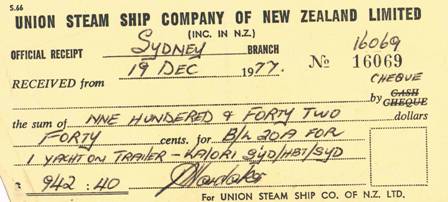 S.66
UNION STEAM SHIP COMPANY OF NEW ZEALAND LIMITED
(INC. IN N.Z.)
OFFICIAL RECEIPT SYDNEY BRANCH 16069
19 DEC 1977. No 16069
RECEIVED from CHEQUE
by CASH
CHEQUE
the sum of NNE HUNDERED & FORTY TWO dollars
FORTY cents. for B/L 20A FOR
1 YACHT ON TRAILER - KAIORI SYD/HBT/SYD
$ 942:40
For UNION STEAM SHIP CO. OF N.Z. LTD.